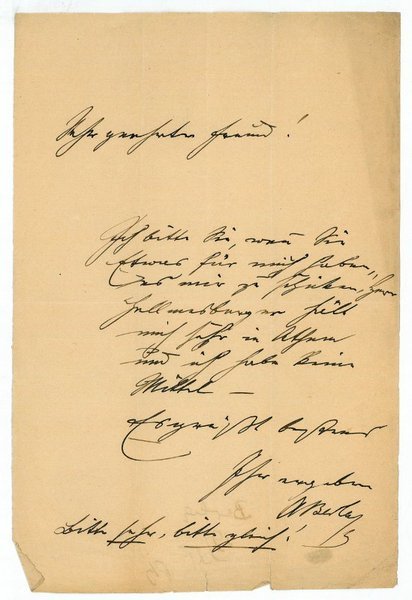 Sehr geehrter Freund!
Ich bitte Sie, wenn Sie
Etwas für mich haben,
es mir zu schicken, Herr
Hellmesberger hält
mich sehr in Athem
und ich habe keine
Mittel –
Es grüßt bestens
Ihr ergeben
Bitte sehr, bitte gleich!